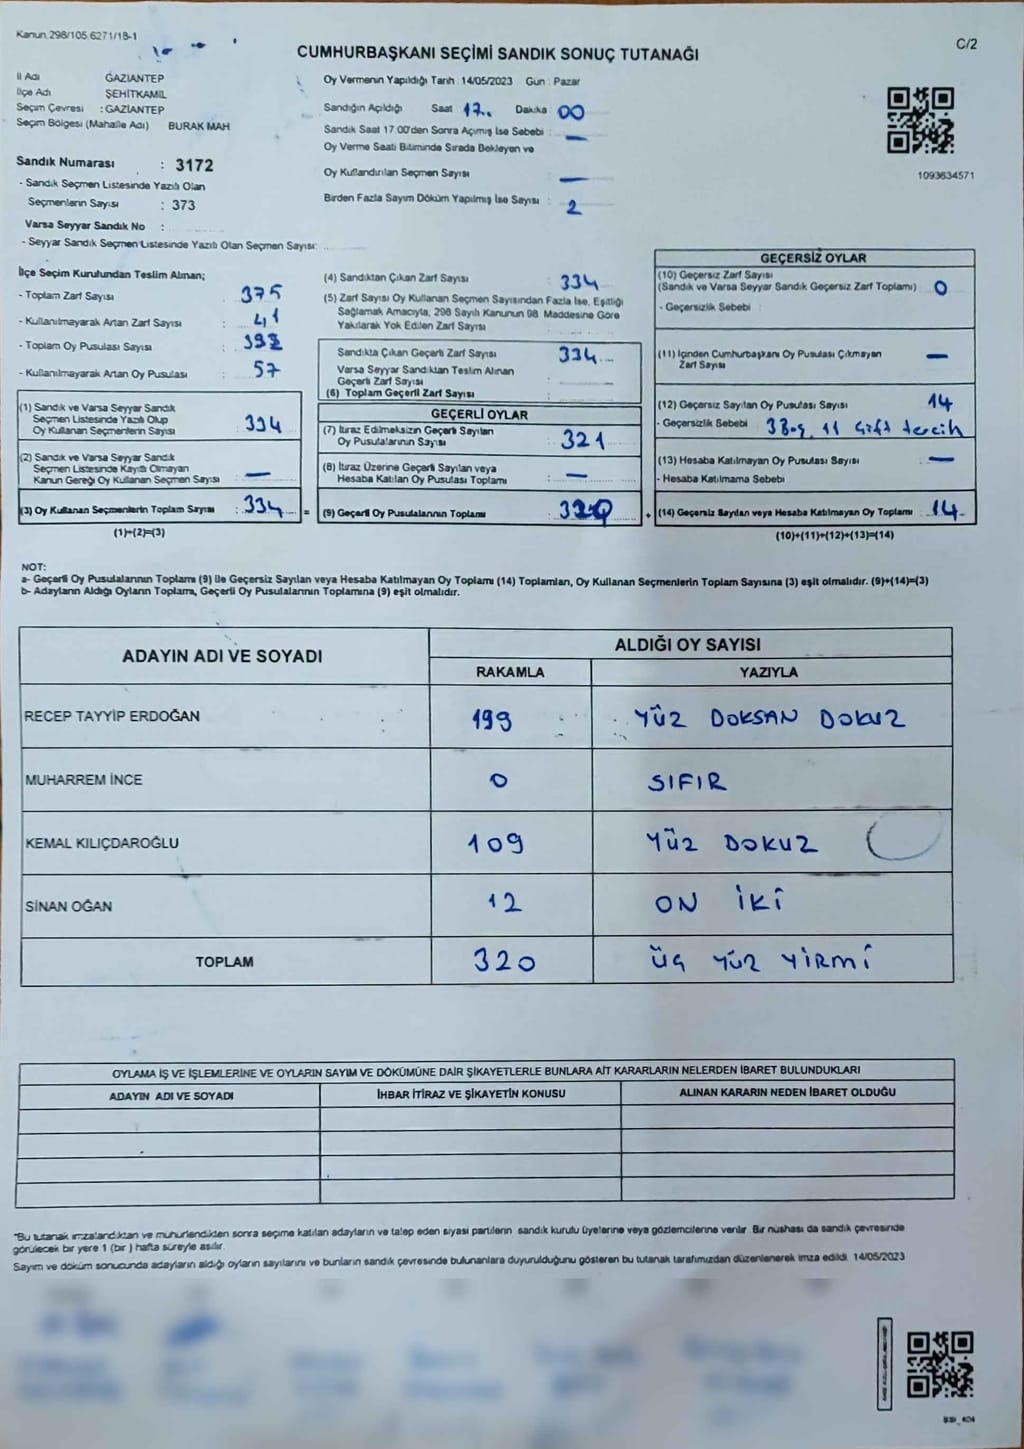 Kanun 298/105 6271/18-1
C/2
CUMHURBAŞKANI SEÇİMİ SANDIK SONUÇ TUTANAĞI
İl Adı GAZİANTEP
İlçe Adı ŞEHİTKAMİL
Seçim Çevresi : GAZİANTEP
Seçim Bölgesi (Mahalle Adı) BURAK MAH
Sandık Numarası : 3172
- Sandık Seçmen Listesinde Yazılı Olan
Seçmenlerin Sayısı : 373
Varsa Seyyar Sandık No :
- Seyyar Sandık Seçmen Listesinde Yazılı Olan Seçmen Sayısı:
Oy Vermenin Yapıldığı Tarih : 14/05/2023 Gün : Pazar
Sandığın Açıldığı Saat 17. Dakika 00
Sandık Saat 17 00'den Sonra Açımış İse Sebebi : —
Oy Verme Saati Bitiminde Sırada Bekleyen ve
Oy Kullandırılan Seçmen Sayısı : —
Birden Fazla Sayım Döküm Yapılmış İse Sayısı : 2
1093634571
İlçe Seçim Kurulundan Teslim Alınan;
- Toplam Zarf Sayısı : 375
- Kullanılmayarak Artan Zarf Sayısı : 41
- Toplam Oy Pusulası Sayısı :
- Kullanılmayarak Artan Oy Pusulası : 57
(1) Sandık ve Varsa Seyyar Sandık
Seçmen Listesinde Yazılı Olup
Oy Kullanan Seçmenlerin Sayısı : 334
(2) Sandık ve Varsa Seyyar Sandık
Seçmen Listesinde Kayıtlı Olmayan
Kanun Gereği Oy Kullanan Seçmen Sayısı : —
(3) Oy Kullanan Seçmenlerin Toplam Sayısı : 334 =
(1)+(2)=(3)
(4) Sandıktan Çıkan Zarf Sayısı : 334
(5) Zarf Sayısı Oy Kullanan Seçmen Sayısından Fazla İse, Eşitliği
Sağlamak Amacıyla, 298 Sayılı Kanunun 98. Maddesine Göre
Yakılarak Yok Edilen Zarf Sayısı :
Sandıkta Çıkan Geçerli Zarf Sayısı : 334
Varsa Seyyar Sandıktan Teslim Alınan
Geçerli Zarf Sayısı :
(6) Toplam Geçerli Zarf Sayısı :
GEÇERLİ OYLAR
(7) İtiraz Edilmeksizin Geçerli Sayılan
Oy Pusulalarının Sayısı : 321
(8) İtiraz Üzerine Geçerli Sayılan veya
Hesaba Katılan Oy Pusulası Toplamı : —
(9) Geçerli Oy Pusulalarının Toplamı : 320 +
GEÇERSİZ OYLAR
(10) Geçersiz Zarf Sayısı
(Sandık ve Varsa Seyyar Sandık Geçersiz Zarf Toplamı) : 0
- Geçersizlik Sebebi :
(11) İçinden Cumhurbaşkanı Oy Pusulası Çıkmayan
Zarf Sayısı : —
(12) Geçersiz Sayılan Oy Pusulası Sayısı : 14
- Geçersizlik Sebebi 3 Boş, 11 Çift tercih
(13) Hesaba Katılmayan Oy Pusulası Sayısı : —
- Hesaba Katılmama Sebebi
(14) Geçersiz Sayılan veya Hesaba Katılmayan Oy Toplamı : 14
(10)+(11)+(12)+(13)=(14)
NOT:
a- Geçerli Oy Pusulalarının Toplamı (9) ile Geçersiz Sayılan veya Hesaba Katılmayan Oy Toplamı (14) Toplamları, Oy Kullanan Seçmenlerin Toplam Sayısına (3) eşit olmalıdır. (9)+(14)=(3)
b- Adayların Aldığı Oyların Toplamı, Geçerli Oy Pusulalarının Toplamına (9) eşit olmalıdır.
ADAYIN ADI VE SOYADI
ALDIĞI OY SAYISI
RAKAMLA YAZIYLA
RECEP TAYYİP ERDOĞAN 199 YÜZ DOKSAN DOKUZ
MUHARREM İNCE 0 SIFIR
KEMAL KILIÇDAROĞLU 109 YÜZ DOKUZ
SİNAN OĞAN 12 ON İKİ
TOPLAM 320 ÜÇ YÜZ YİRMİ
OYLAMA İŞ VE İŞLEMLERİNE VE OYLARIN SAYIM VE DÖKÜMÜNE DAİR ŞİKAYETLERLE BUNLARA AİT KARARLARIN NELERDEN İBARET BULUNDUKLARI
ADAYIN ADI VE SOYADI İHBAR İTİRAZ VE ŞİKAYETİN KONUSU ALINAN KARARIN NEDEN İBARET OLDUĞU
*Bu tutanak imzalandıktan ve mühürlendikten sonra seçime katılan adayların ve talep eden siyasi partilerin sandık kurulu üyelerine veya gözlemcilerine verilir. Bir nüshası da sandık çevresinde
görülecek bir yere 1 (bir ) hafta süreyle asılır.
Sayım ve döküm sonucunda adayların aldığı oyların sayılarını ve bunların sandık çevresinde bulunanlara duyurulduğunu gösteren bu tutanak tarafımızdan düzenlenerek imza edildi. 14/05/2023